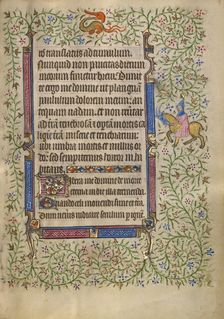 us translatus ad tumulum.
Nunquid non paucitas dierum
meorum finietur brevi? Dimit
te ergo me domine ut plangam
paululum dolorem meum: an
tequam vadam et non revertar
ad tenebrosam et opertam mortis ca
ligine terram miserie et tenebrarum
ubi umbra mortis et nullus or
do sed sempiternus horror in
habitans.
Libera me domine de morte
eterna in die illa tremenda
Quando celi movendi sunt et terra
Dum veneris iudicare seculum per igne